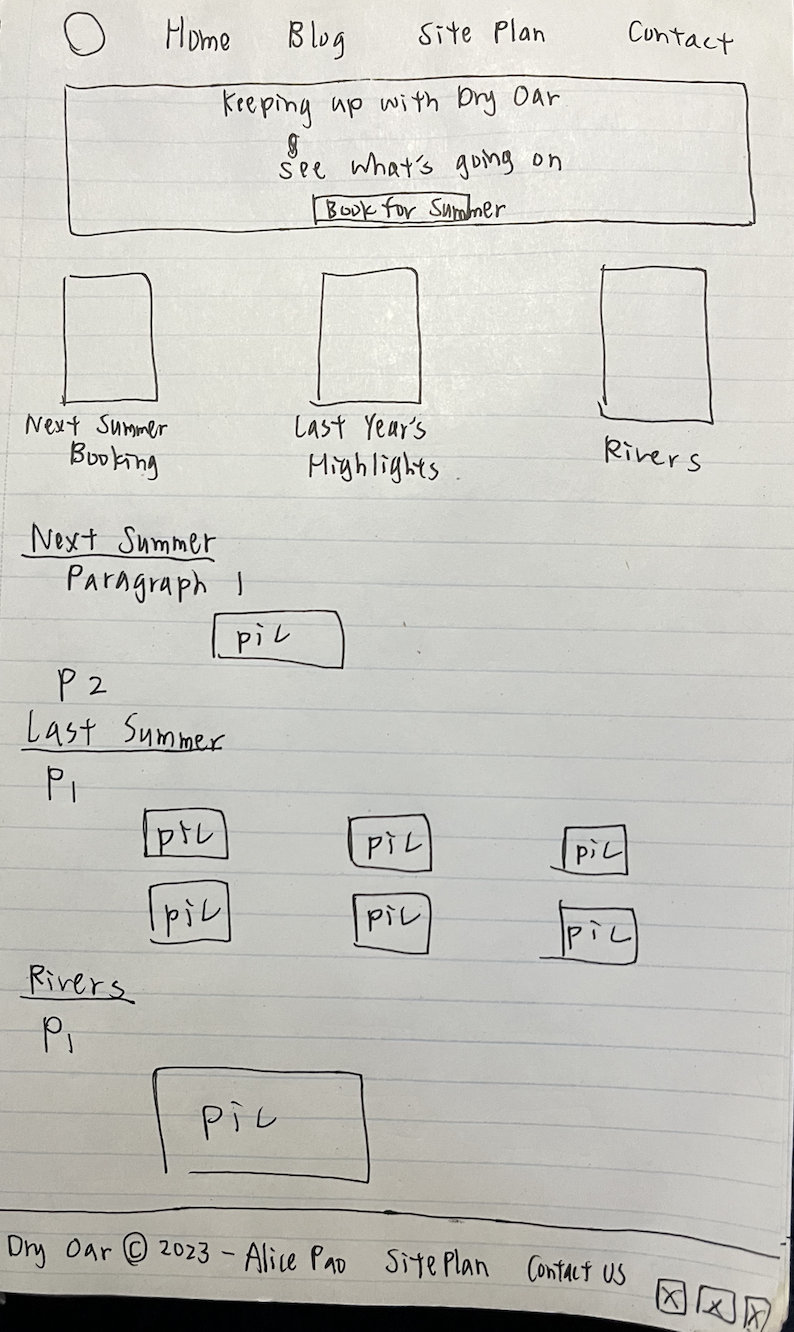 Home Blog Site Plan Contact
Keeping up with Dry Oar
see what's going on
Book for Summer
Next Summer
Booking
Last Year's
Highlights
Rivers
Next Summer
Paragraph 1
pic
P2
Last Summer
P1
pic pic pic
pic pic pic
Rivers
P1
pic
Dry Oar © 2023 - Alice Pao Site Plan Contact US
X X X